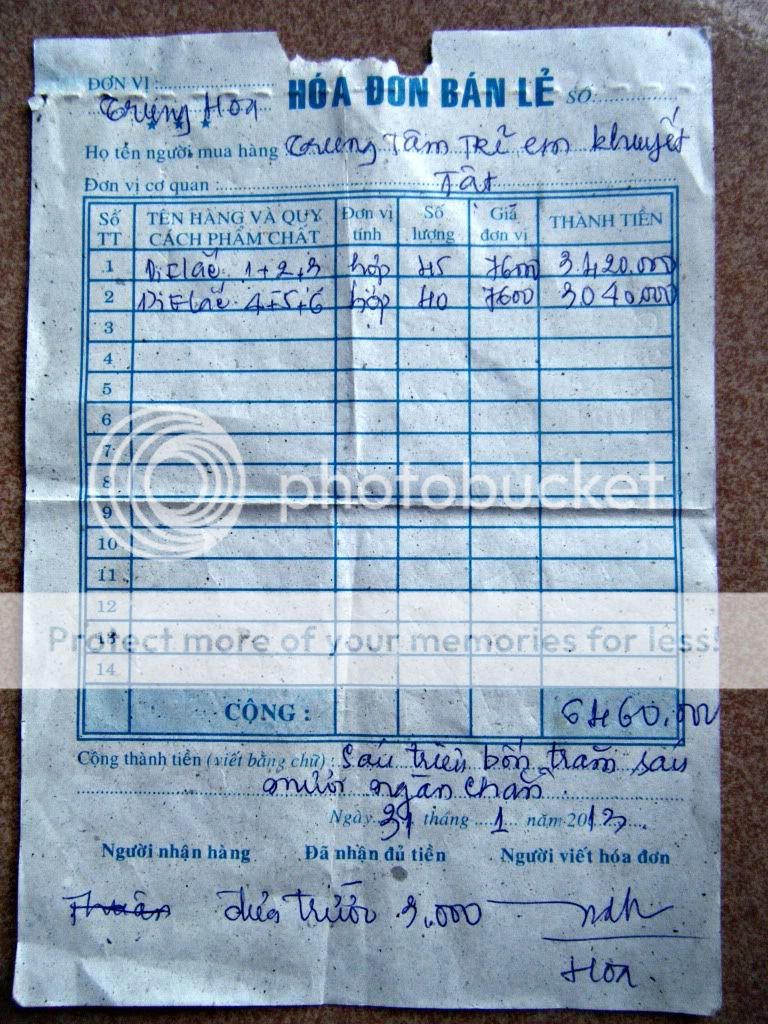 ĐƠN VỊ : HÓA ĐƠN BÁN LẺ SỐ
Trung Hoa
Họ tên người mua hàng : Trung Tâm Trẻ em khuyết
Đơn vị cơ quan : Tật
Số TT TÊN HÀNG VÀ QUY CÁCH PHẨM CHẤT Đơn vị tính Số lượng Giá đơn vị THÀNH TIỀN
1 1+2+3 hộp 45 3.420.000
2 4+5+6 hộp 40 7600 3.040.000
3
4
5
6
7
8
photobucket
9
10
11
12
Protect more of your memories for less!
13
14
CỘNG : 6460.000
Cộng thành tiền (viết bằng chữ) : Sáu triệu bốn trăm sáu
mươi ngàn chẵn.
Ngày 31 tháng 1 năm 2013.
Người nhận hàng Đã nhận đủ tiền Người viết hóa đơn
Thuận đưa trước 3.000
Hoa.